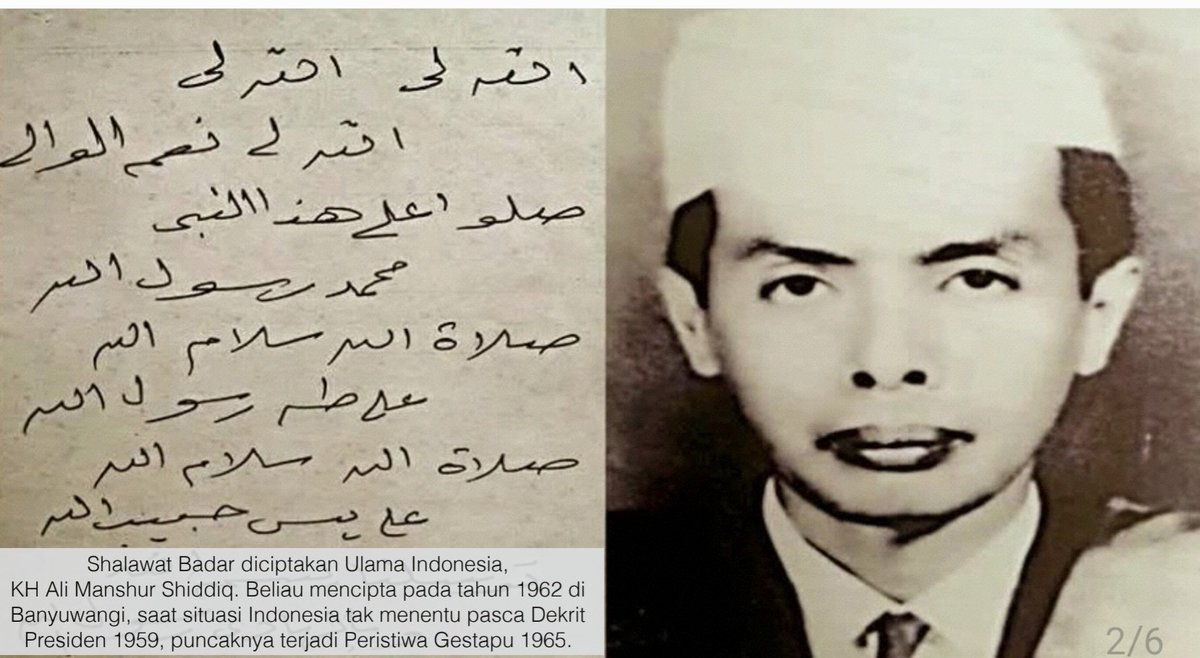 لى لى
لي نعم الوالي
صلوا على هذا النبى
محمد رسول الله
صلاة الله سلام الله
على طه رسول الله
صلاة الله سلام الله
على يس حبيب الله
Shalawat Badar diciptakan Ulama Indonesia,
KH Ali Manshur Shiddiq. Beliau mencipta pada tahun 1962 di
Banyuwangi, saat situasi Indonesia tak menentu pasca Dekrit
Presiden 1959, puncaknya terjadi Peristiwa Gestapu 1965.
2/6